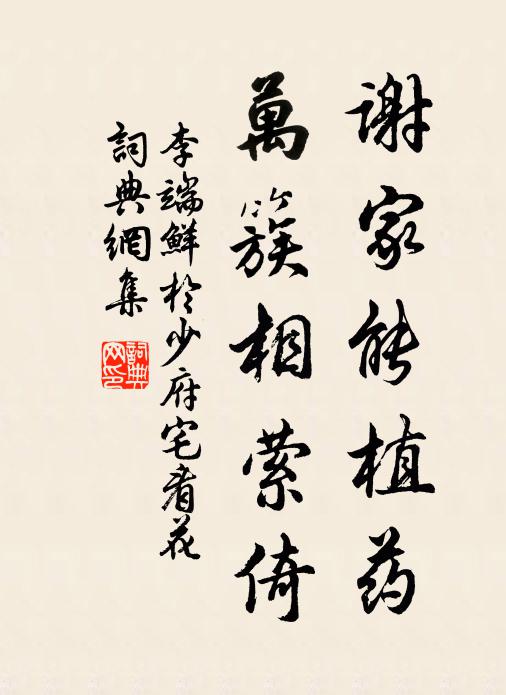 謝家能植药
萬簇相縈倚
李端鮮於少府宅看花
詞典網集
詞典网印